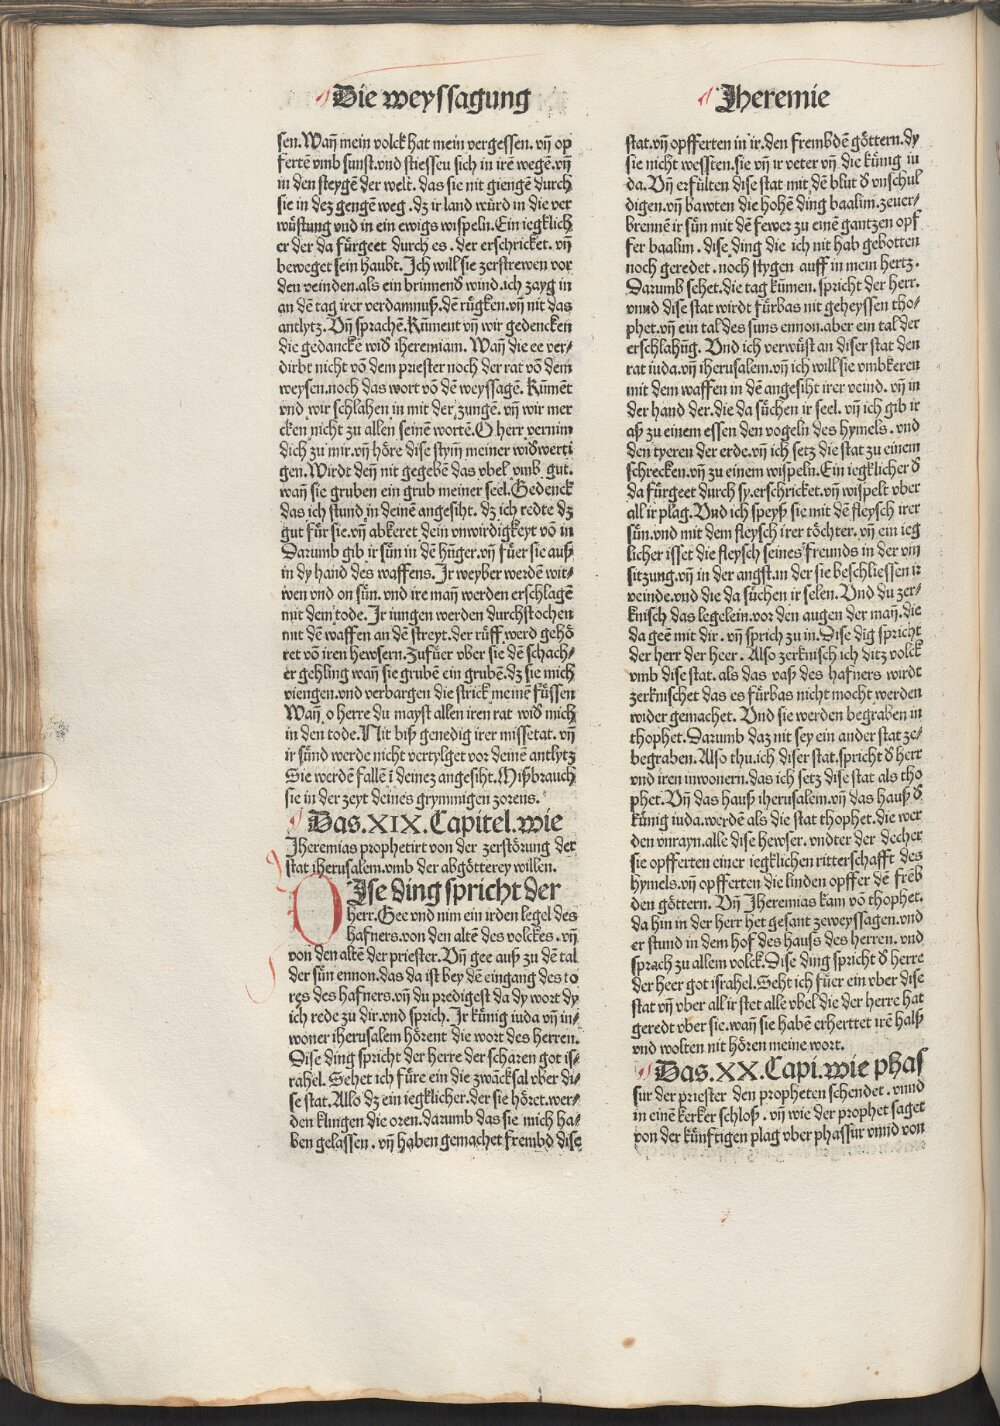 Die weyssagung
Jheremie
sen. Wañ mein volck hat mein vergessen. vñ op
fertē vmb sunst. vnd stiessen sich in irē wegē. vñ
in den steygē der welt. das sie nit giengē durch
sie in dez gengē weg. dz ir land würd in die ver
wüstung vnd in ein ewigs wispeln. Ein iegklich
er der da fürgeet durch es. der erschricket. vñ
beweget sein haubt. Ich will sie zerstrewen vor
den veinden. als ein brinnend wind. ich zayg in
an dē tag irer verdamnuß. dē rügken. vñ nit das
antlytz. Vñ sprachē. Kūment vñ wir gedencken
die gedanckē wid iheremiam. Wañ die ee ver⸗
dirbt nicht vō dem priester noch der rat vō dem
weysen. noch das wort vō dē weyssagē. Kūmēt
vnd wir schlahen in mit der zungē. vñ wir mer
cken nicht zu allen seinē wortē. O herr vernim
dich zu mir. vñ höre dise stym̄ meiner widwerti
gen. Wirdt deñ nit gegebē das vbel vmb gut.
wañ sie gruben ein grub meiner seel. Gedenck
das ich stund in deinē angesiht. dz ich redte dz
gut für sie. vñ abkeret dein vnwirdigkeyt vō in
Darumb gib ir sün in dē hūger. vñ füer sie auß
in dy hand des waffens. Ir weyber werdē wit⸗
wen vnd on sün. vnd ire mañ werden erschlagē
mit dem tode. Ir iungen werden durchstochen
mit dē waffen an dē streyt. der rüff werd gehö
ret vō iren hewsern. Zufüer vber sie dē schach⸗
er gehling wañ sie grubē ein grubē. dz sie mich
viengen. vnd verbargen die strick meinē füssen
Wañ o herre du mayst allen iren rat wid mich
in den tode. Nit biß genedig irer missetat. vñ
ir sünd werde nicht vertylget vor deinē antlytz
Sie werdē fallē ī deinez angesiht. Mißbrauch
sie in der zeyt deines grymmigen zorens.
Das. XIX. Capitel. wie
Jheremias prophetirt von der zerstörung der
stat iherusalem. vmb der abgötterey willen.
DJse ding spricht der
herr. Gee vnd nim ein irden legel des
hafners. von den altē des volckes. vñ
von den altē der priester. Vñ gee auß zu dē tal
der sün ennon. das da ist bey dē eingang des to
res des hafners. vñ du predigest da dy wort dy
ich rede zu dir. vnd sprich. Ir künig iuda vñ in⸗
woner iherusalem hörent die wort des herren.
Dise ding spricht der herre der scharen got is⸗
rahel. Sehet ich füre ein die zwäcksal vber di⸗
se stat. Also dz ein iegklicher. der sie höret. wer⸗
den klingen die oren. darumb das sie mich ha⸗
ben gelassen. vñ haben gemachet frembd dise
stat. vñ opfferten in ir. den frembdē göttern. dy
sie nicht wessten. sie vñ ir veter vñ die künig iu
da. Vñ erfülten dise stat mit dē blut d vnschul
digen. vñ bawten die hohē ding baalim. zeuer⸗
brennē ir sün mit dē fewer zu einē gantzen opf
fer baalim. dise ding die ich nit hab gebotten
noch geredet. noch stygen auff in mein hertz.
Darumb sehet. die tag kūmen. spricht der herr.
vnnd dise stat wirdt fürbas nit geheyssen tho⸗
phet. vñ ein tal des suns ennon. aber ein tal der
erschlahūg. Vnd ich verwüst an diser stat den
rat iuda. vñ iherusalem. vñ ich will sie vmbkeren
mit dem waffen in dē angesiht irer veind. vñ in
der hand der. die da süchen ir seel. vñ ich gib ir
aß zu einem essen den vogeln des hymels. vnd
den tyeren der erde. vñ ich setz die stat zu einem
schrecken. vñ zu einem wispeln. Ein iegklicher d
da fürgeet durch sy. erschricket. vñ wispelt vber
all ir plag. Vnd ich speyß sie mit dē fleysch irer
sün. vnd mit dem fleysch irer töchter. vñ ein ieg
licher isset die fleysch seines freunds in der vm
sitzung. vñ in der angst. in der sie beschliessen ir
veinde. vnd die da süchen ir selen. Vnd du zer⸗
knisch das legelein. vor den augen der mañ. die
da geē mit dir. vñ sprich zu in. Dise dig spricht
der herr der heer. Also zerknisch ich ditz volck
vmb dise stat. als das vaß des hafners wirdt
zerknischet das es fürbas nicht mocht werden
wider gemachet. Vnd sie werden begraben in
thophet. Darumb daz nit sey ein ander stat ze⸗
begraben. Also thu. ich diser stat. spricht d herr
vnd iren inwonern. das ich setz dise stat als tho
phet. Vñ das hauß iherusalem. vñ das hauß d
künig iuda. werdē als die stat thophet. die wer
den vnrayn. alle dise hewser. vndter der decher
sie opfferten einer iegklichen ritterschafft des
hymels. vñ opfferten die linden opffer dē frēb
den göttern. Vñ Jheremias kam vō thophet.
da hin in der herr het gesant zeweyssagen. vnd
er stund in dem hof des hauss des herren. vnd
sprach zu allem volck. Dise ding spricht d herre
der heer got israhel. Seht ich füer ein vber dise
stat vñ vber all ir stet alle vbel die der herre hat
geredt vber sie. wañ sie habē erherttet irē halß
vnd wolten nit hören meine wort.
Das. XX. Capi. wie phas
sur der priester den propheten schendet. vnnd
in einē kerker schloß. vñ wie der prophet saget
von der künftigen plag vber phassur vnnd von